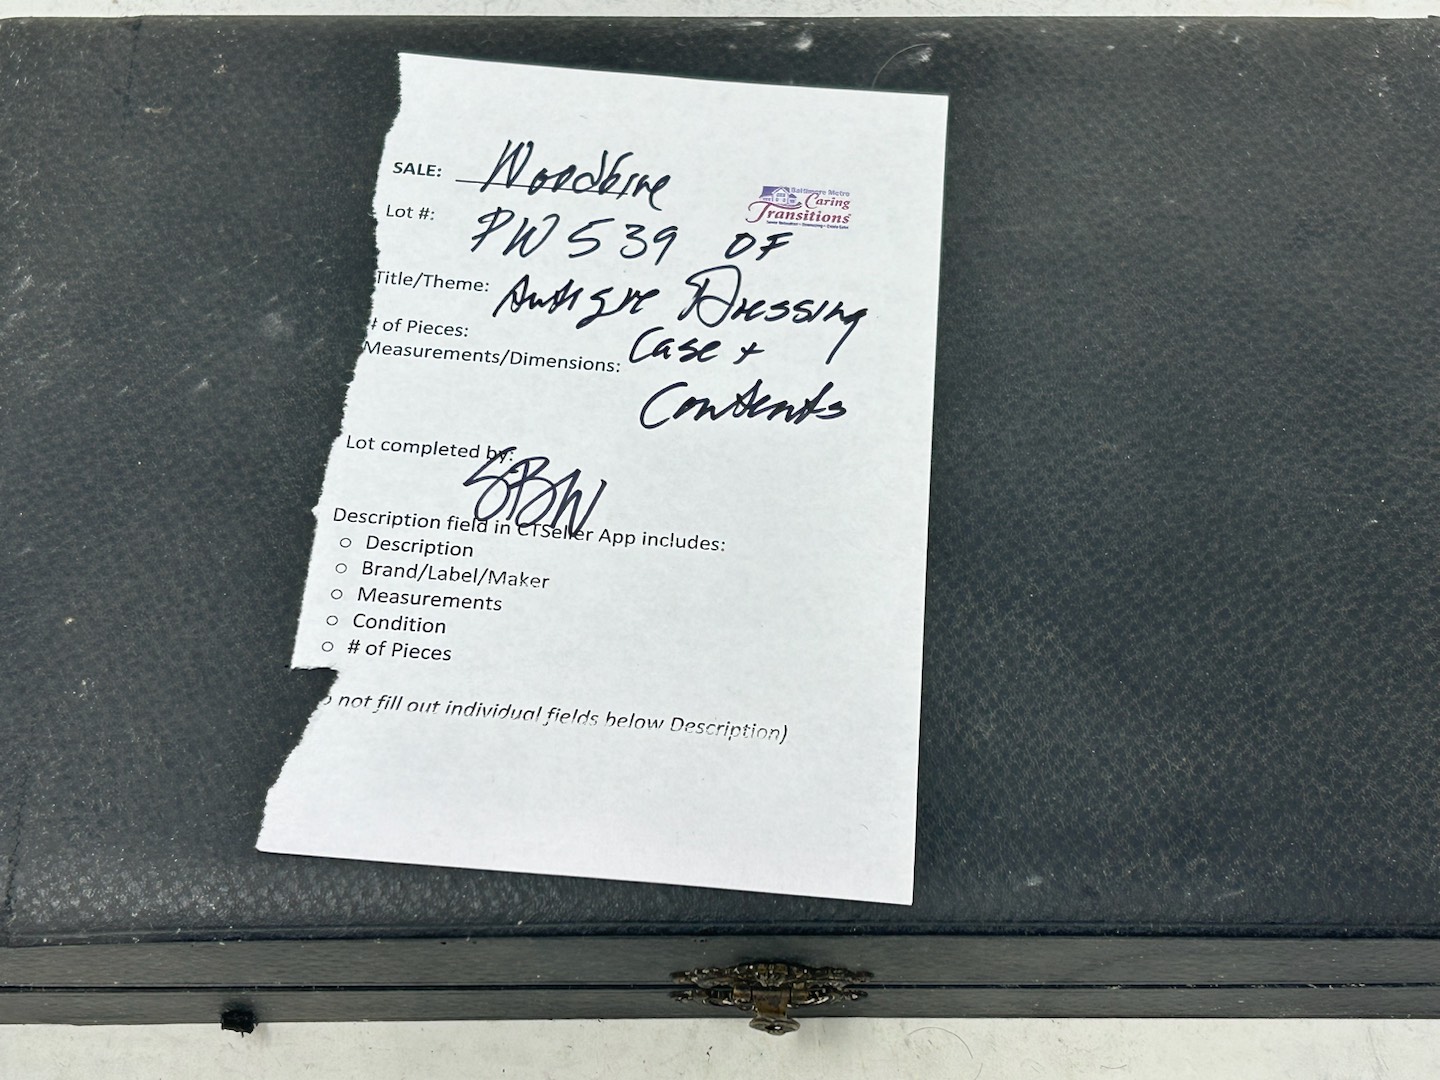 SALE: Woodbine
Baltimore Metro
Caring
Transitions
Lot #: PW 539 OF
Title/Theme: Antique Dressing
# of Pieces:
Case +
Measurements/Dimensions:
Contents
Lot completed by:
SBW
Description field in CTSeller App includes:
○ Description
○ Brand/Label/Maker
○ Measurements
○ Condition
○ # of Pieces
not fill out individual fields below Description)